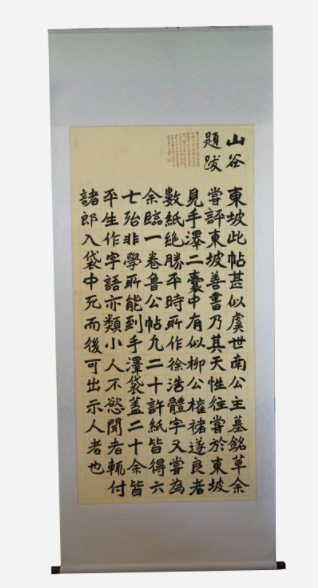 山谷
題跋
東坡此帖甚似虞世南公主墓銘草余
嘗評東坡善書乃其天性往嘗於東坡
見手澤二囊中有似柳公權褚遂良者
數紙絶勝平時所作徐浩體字又嘗為
余臨一卷魯公帖九二十許紙皆得六
七殆非學所能到手澤袋蓋二十余皆
平生作字語亦類小人不慾聞者輒付
諸郎入袋中死而後可出示人者也